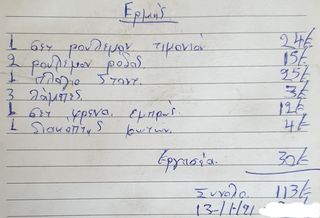 Ερμής
1 σετ ρουλεμαν τιμονιού 24€
2 ρουλεμαν ροδας 15€
1 πλαγιο σταντ. 25€
3 λάμπες 3€
1 σετ φρενα εμπρός 12€
1 διακόπτης φωτων. 4€
Εργασία. 30€
Συνολο. 113€
13-/1-/21